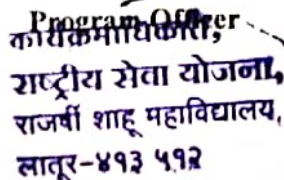 Program Officer
कार्यक्रमाधिकारी,
राष्ट्रीय सेवा योजना,
राजर्षी शाहू महाविद्यालय,
लातूर-४१३ ५१२